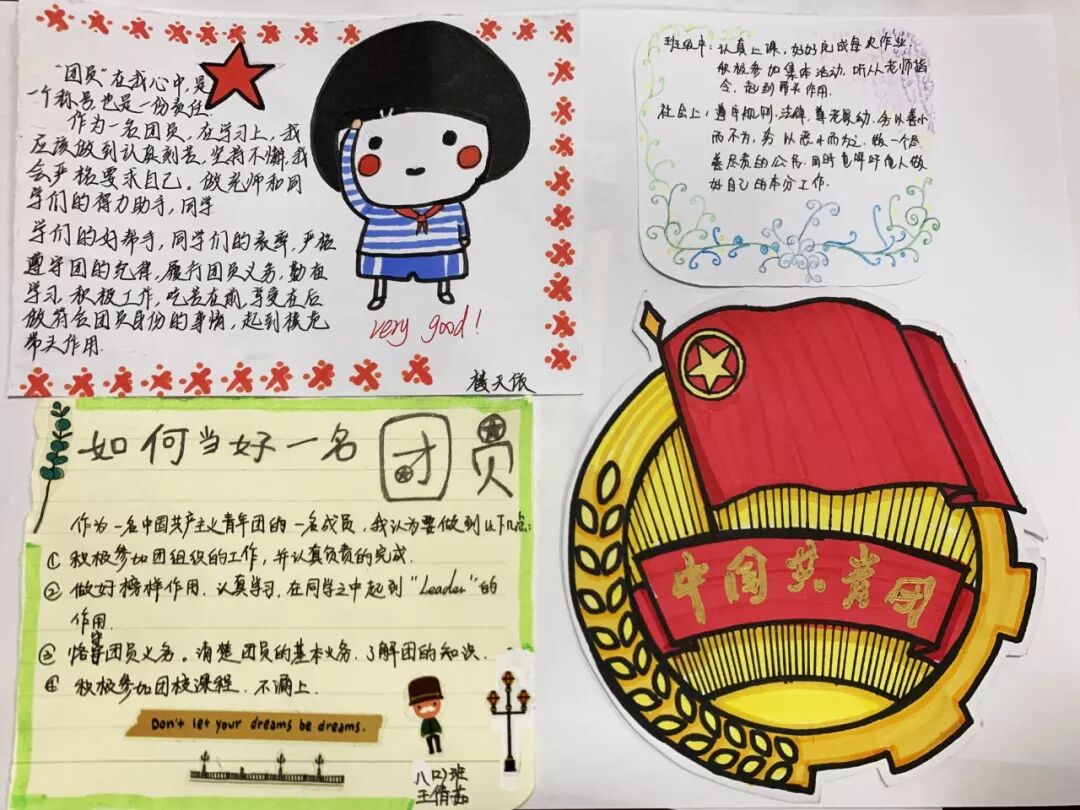 "团员"在我心中,是
一个称号,也是一份责任.
作为一名团员,在学习上,我
应该做到认真刻苦,坚持不懈.我
会严格要求自己。做老师和同
学们的得力助手,同学
学们的好帮手,同学们的表率,严格
遵守团的纪律,履行团员义务.勤在
学习,积极工作,吃苦在前,享受在后
做符合团员身份的事情,起到模范
带头作用.
very good!
楼天依
班级中:认真上课,好好完成每次作业,
积极参加集体活动,听从老师指
令,起到带头作用.
社会上:遵守规则,法律,尊老爱幼.勿以善小
而不为,勿以恶小而为之.做一个尽
善尽责的公民.同时也呼吁他人做
好自己的本分工作.
如何当好一名团员
作为一名中国共产主义青年团的一名成员,我认为要做到以下几点:
① 积极参加团组织的工作,并认真负责的完成.
② 做好榜样作用.认真学习,在同学之中起到"Leader"的
作用.
③ 恪守团员义务。清楚团员的基本义务.了解团的知识.
④ 积极参加团校课程.不漏上.
Don't let your dreams be dreams.
八(2)班
王倩茹
中国共青团